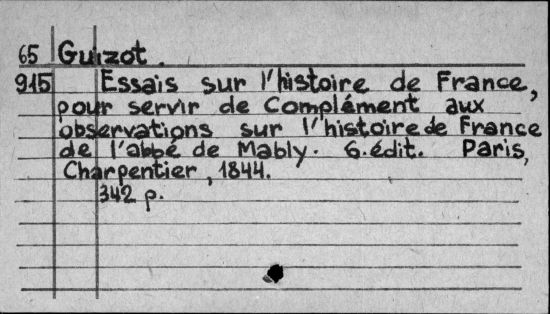 65 Guizot.
915 Essais sur l'histoire de France,
pour servir de Complément aux
observations sur l'histoire de France
de l'abbé de Mably. 6.édit. Paris,
Charpentier, 1844.
342 p.